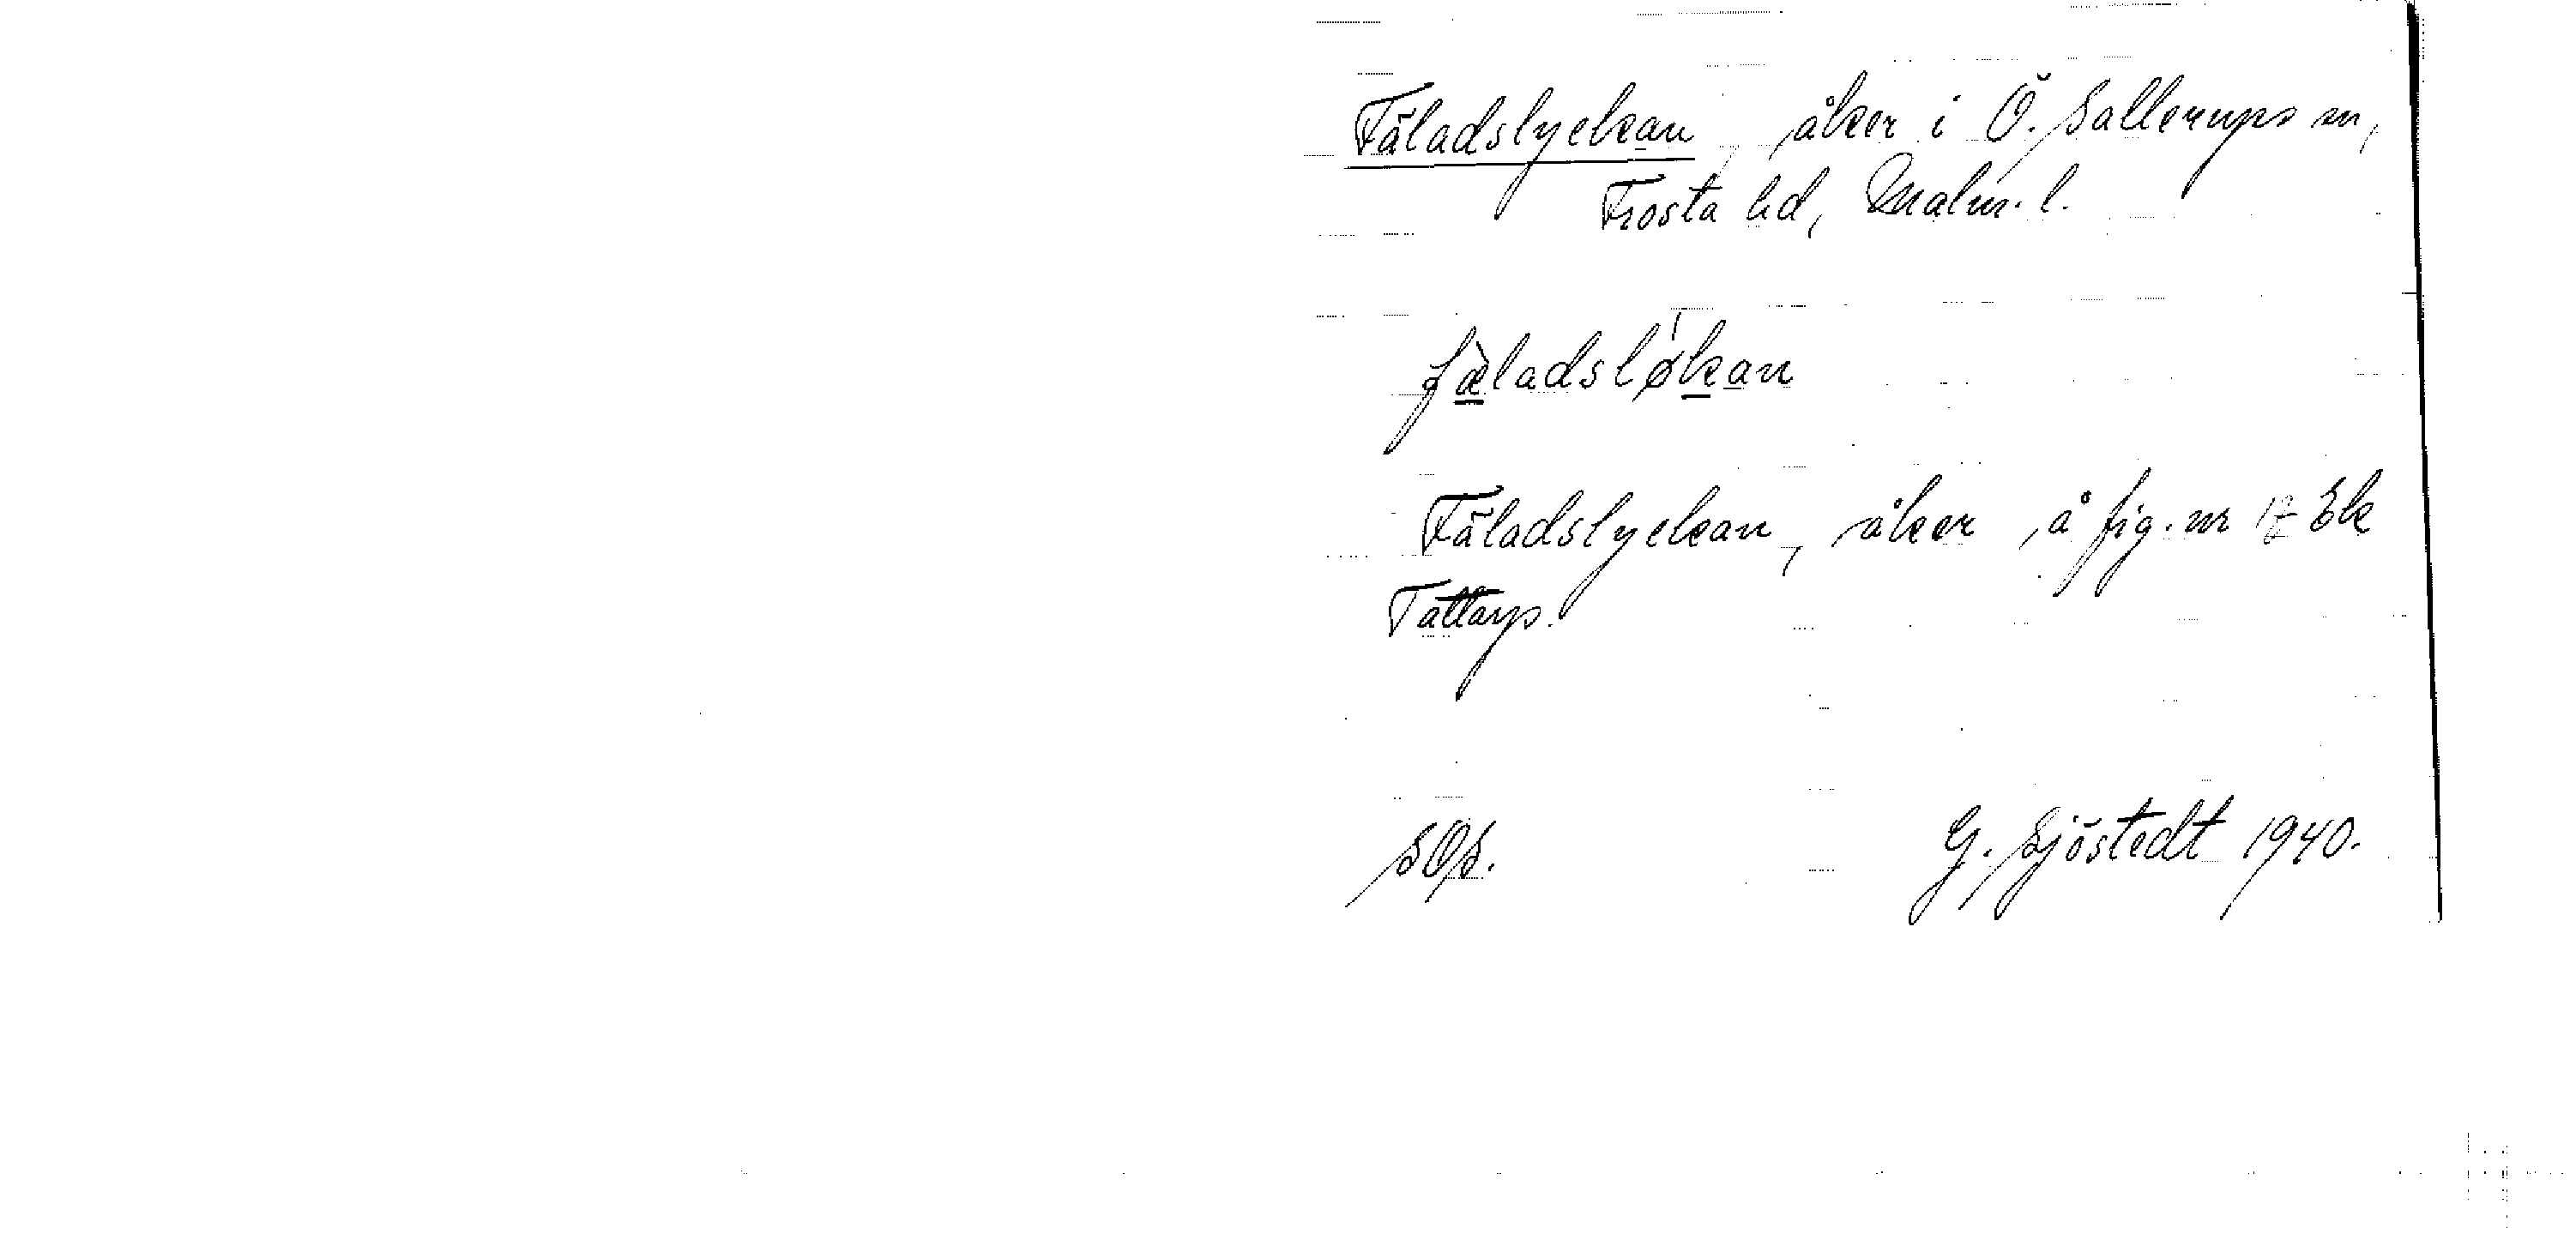 Fäladslyckan, åker i Ö. Sallerups sn,
Frosta hd, Malm. l.
fæ̀ladslø̍kan
Fäladslyckan, åker å fig. nr 17 Ek
Tattarp.
SOS.
G. Sjöstedt 1940.